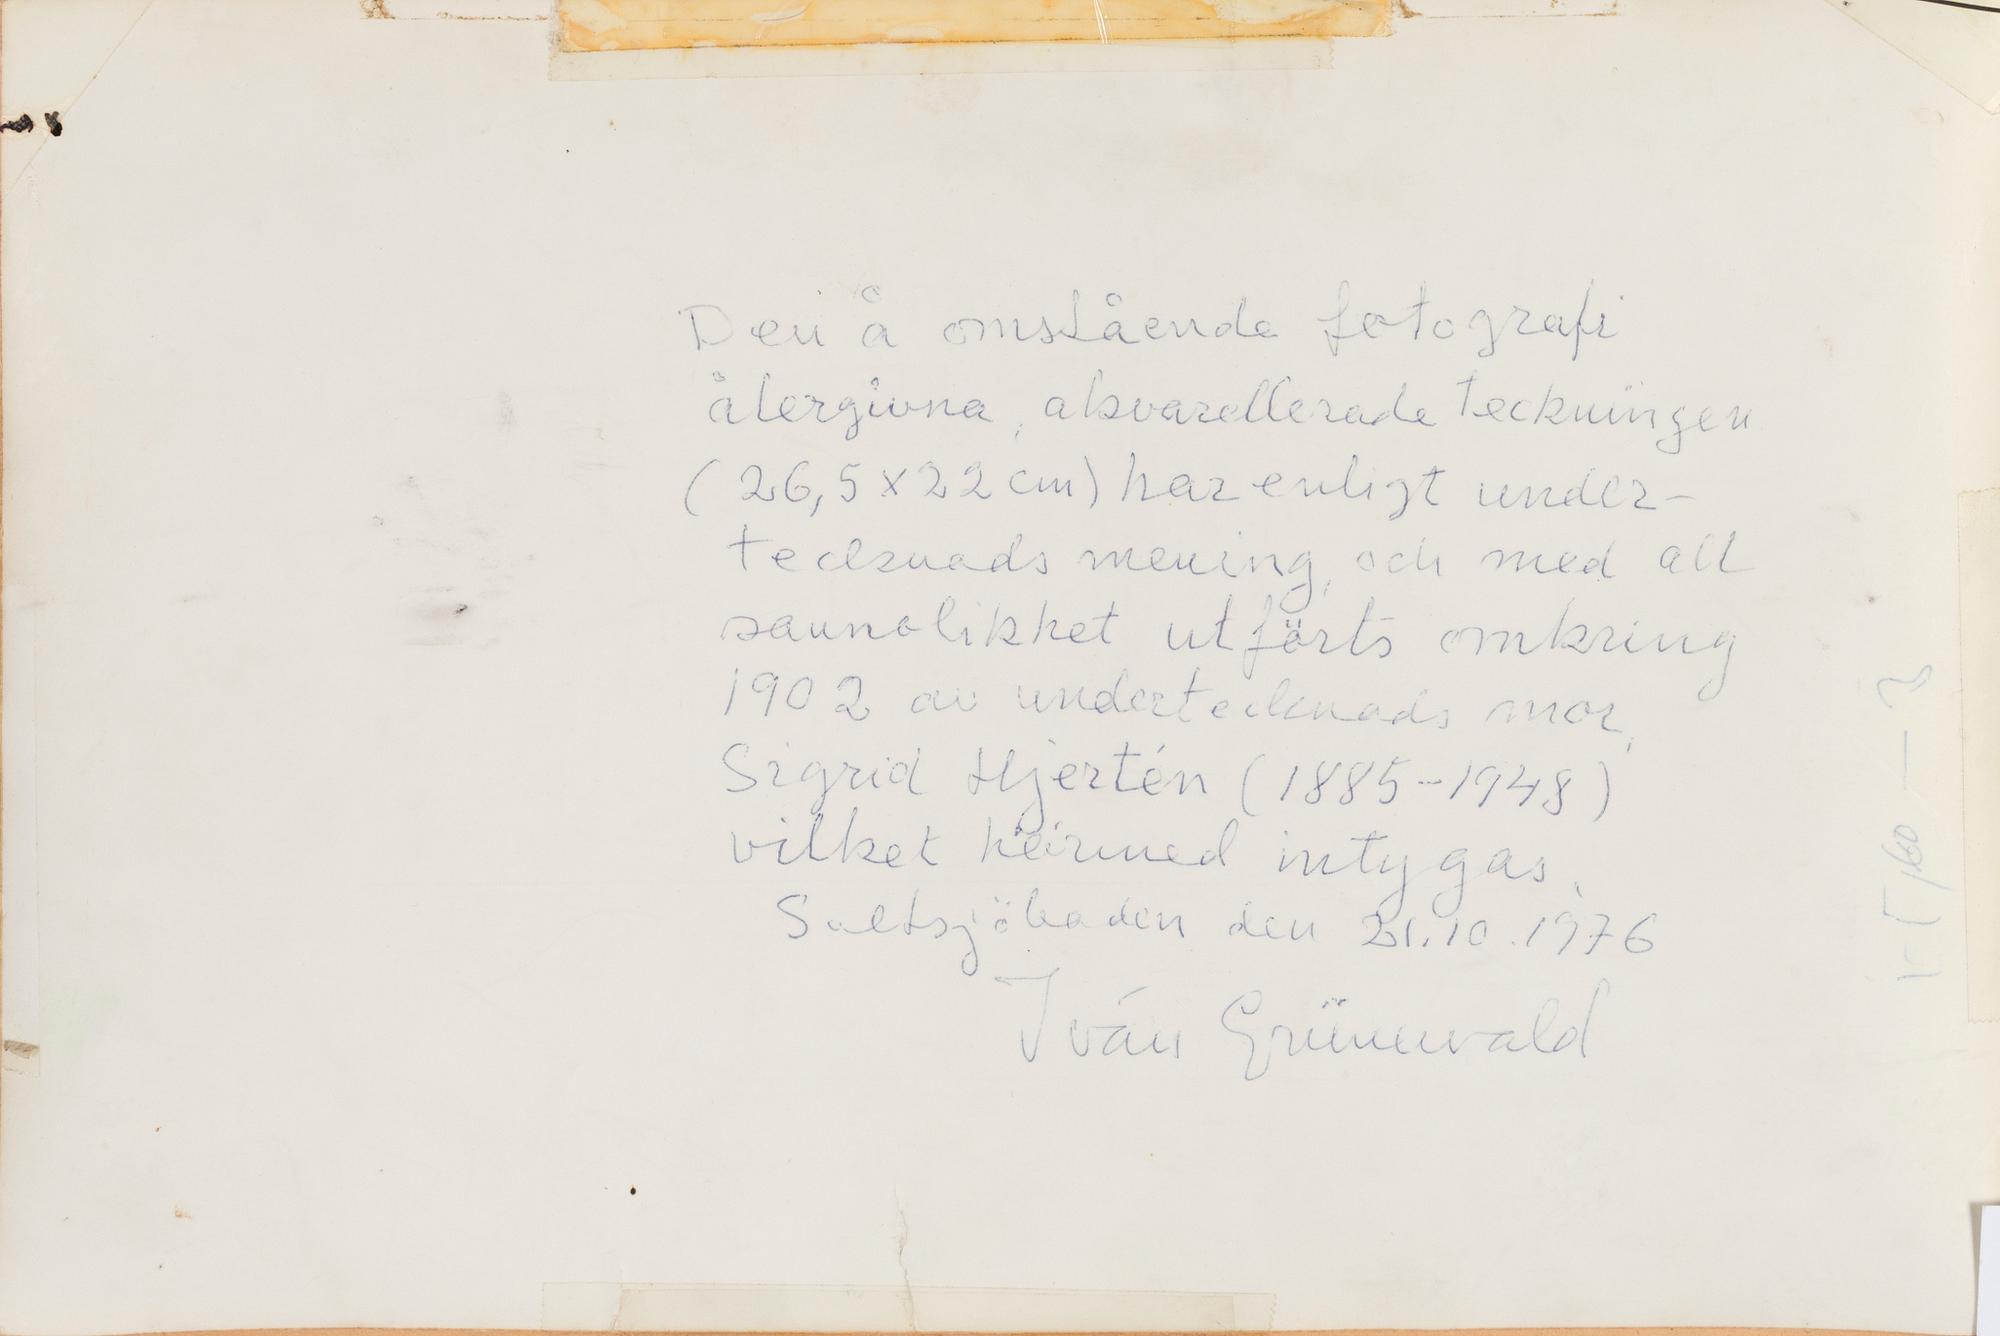 Den å omstående fotografi
återgivna, akvarellerade teckningen
(26,5 x 22 cm) har enligt under-
tecknads mening, och med all
sannolikhet utförts omkring
1902 av undertecknads mor,
Sigrid Hjertén (1885-1948)
vilket härmed intygas.
Saltsjöbaden den 21.10.1976
Iván Grünewald